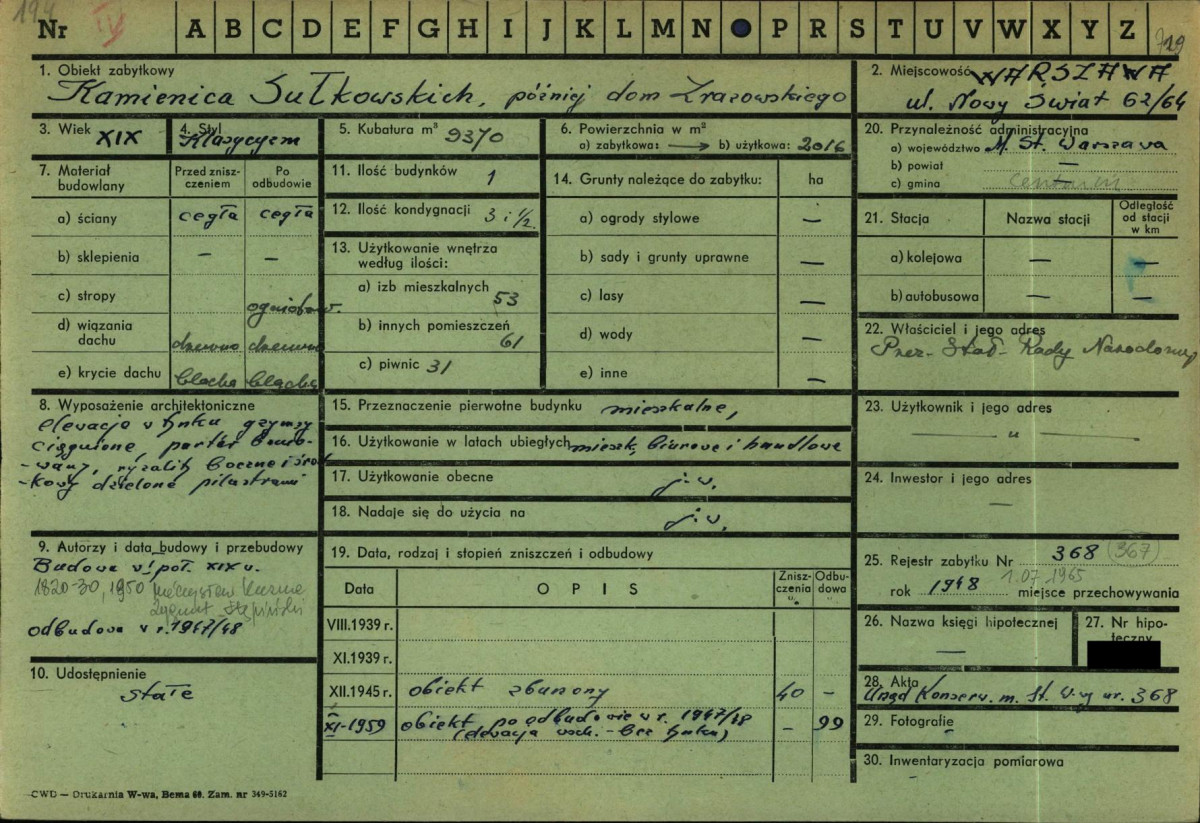 194
Nr IV A B C D E F G H I J K L M N P R S T U V W X Y Z 729
1. Obiekt zabytkowy
Kamienica Sułkowskich, później dom Zrazowskiego
2. Miejscowość WARSZAWA
ul. Nowy Świat 62/64
3. Wiek XIX
4. Styl
Klasycyzm
5. Kubatura m³ 9370
6. Powierzchnia w m²
a) zabytkowa: → b) użytkowa: 2016
20. Przynależność administracyjna
a) województwo M. St. Warszawa
b) powiat —
c) gmina centrum
7. Materiał budowlany
Przed zniszczeniem
Po odbudowie
a) ściany cegła cegła
b) sklepienia – –
c) stropy ogniotrw.
d) wiązania dachu drewno drewno
e) krycie dachu blacha blacha
11. Ilość budynków 1
12. Ilość kondygnacji 3 i 1/2.
13. Użytkowanie wnętrza
według ilości:
a) izb mieszkalnych 53
b) innych pomieszczeń
61
c) piwnic 31
14. Grunty należące do zabytku: ha
a) ogrody stylowe —
b) sady i grunty uprawne —
c) lasy —
d) wody —
e) inne —
21. Stacja Nazwa stacji Odległość od stacji w km
a) kolejowa — —
b) autobusowa — —
22. Właściciel i jego adres
Prez. Stoł. Rady Narodowej
8. Wyposażenie architektoniczne
elewacja w tynku gzymsy
ciągnione, parter bonio-
-wany, ryzality boczne i środ
-kowy dzielone pilastrami
15. Przeznaczenie pierwotne budynku mieszkalne,
16. Użytkowanie w latach ubiegłych mieszk, biurowe i handlowe
17. Użytkowanie obecne j.w.
18. Nadaje się do użycia na j.w.
23. Użytkownik i jego adres
— " —
24. Inwestor i jego adres
—
9. Autorzy i data budowy i przebudowy
Budowa w I poł. XIX w.
1820-30, 1950 Mieczysław Kuzma
Zygmunt Stępiński
odbudowa w r. 1947/48
10. Udostępnienie
stałe
19. Data, rodzaj i stopień zniszczeń i odbudowy
Data OPIS Zniszczenia % Odbudowa
VIII.1939 r.
XI.1939 r.
XII.1945 r. obiekt zburzony 40 –
XI-1959 obiekt po odbudowie w r. 1947/48 – 99
(elewacja wsch. - bez tynku)
25. Rejestr zabytku Nr 368 (367)
1.07.1965
rok 1948 miejsce przechowywania
26. Nazwa księgi hipotecznej
—
27. Nr hipoteczny
28. Akta
Urząd Konserw. m. St. W-wy nr. 368
29. Fotografie
-
30. Inwentaryzacja pomiarowa
CWD — Drukarnia W-wa, Bema 60. Zam. nr 349-5162